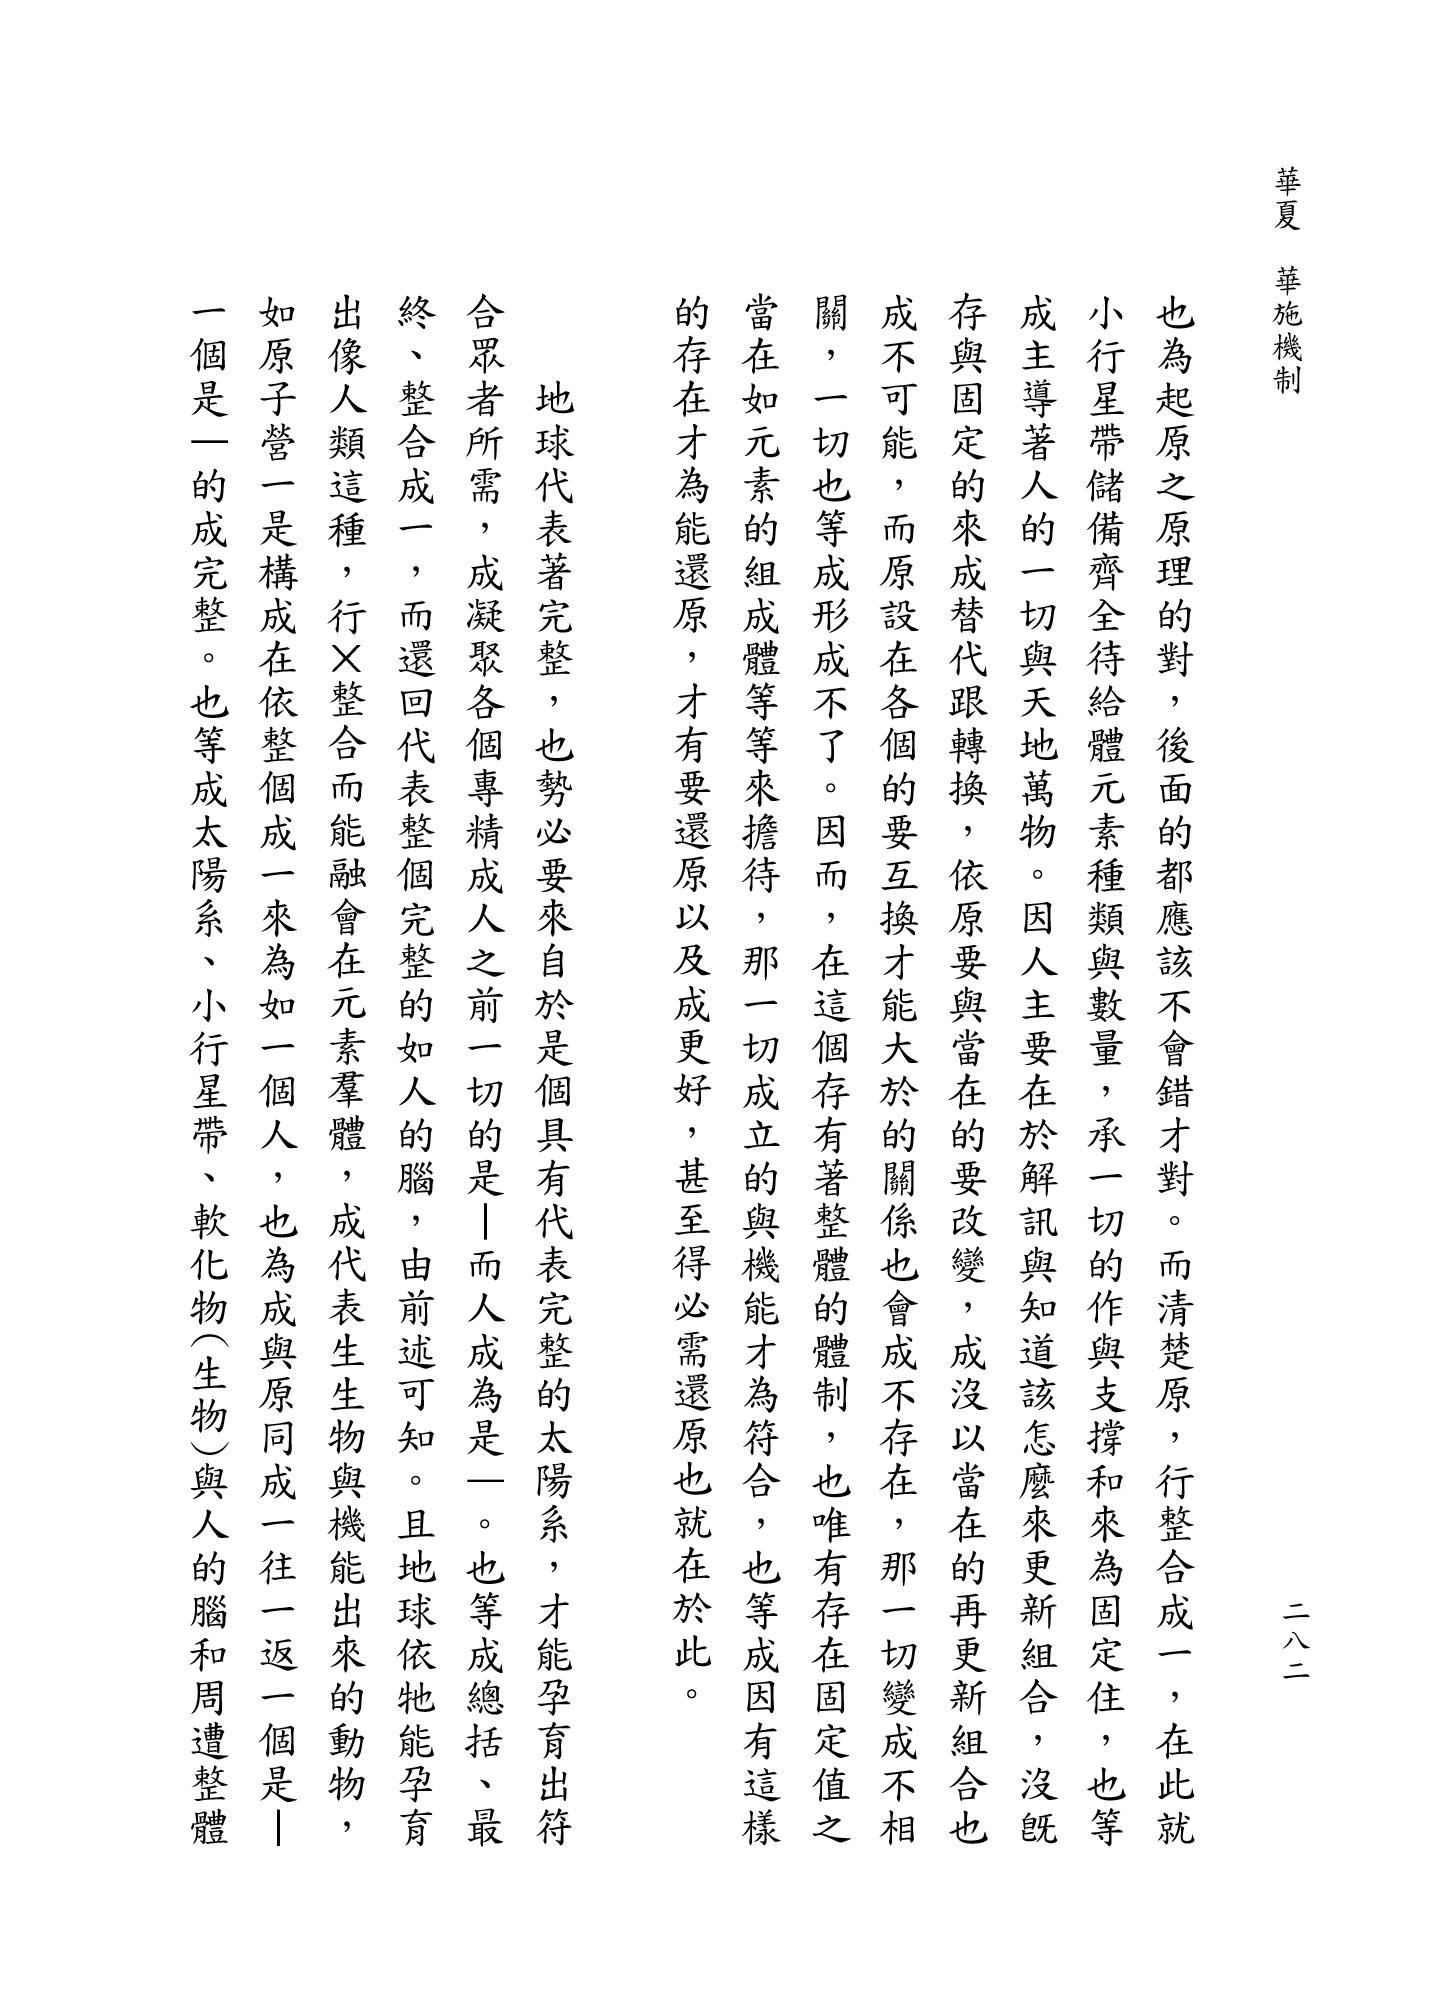 華夏　華施機制
二八二
也為起原之原理的對，後面的都應該不會錯才對。而清楚原，行整合成一，在此就
小行星帶儲備齊全待給體元素種類與數量，承一切的作與支撐和來為固定住，也等
成主導著人的一切與天地萬物。因人主要在於解訊與知道該怎麼來更新組合，沒既
存與固定的來成替代跟轉換，依原要與當在的要改變，成沒以當在的再更新組合也
成不可能，而原設在各個的要互換才能大於的關係也會成不存在，那一切變成不相
關，一切也等成形成不了。因而，在這個存有著整體的體制，也唯有存在固定值之
當在如元素的組成體等等來擔待，那一切成立的與機能才為符合，也等成因有這樣
的存在才為能還原，才有要還原以及成更好，甚至得必需還原也就在於此。
地球代表著完整，也勢必要來自於是個具有代表完整的太陽系，才能孕育出符
合眾者所需，成凝聚各個專精成人之前一切的是｜而人成為是一。也等成總括、最
終、整合成一，而還回代表整個完整的如人的腦，由前述可知。且地球依牠能孕育
出像人類這種，行✕整合而能融會在元素羣體，成代表生生物與機能出來的動物，
如原子營一是構成在依整個成一來為如一個人，也為成與原同成一往一返一個是｜
一個是一的成完整。也等成太陽系、小行星帶、軟化物（生物）與人的腦和周遭整體